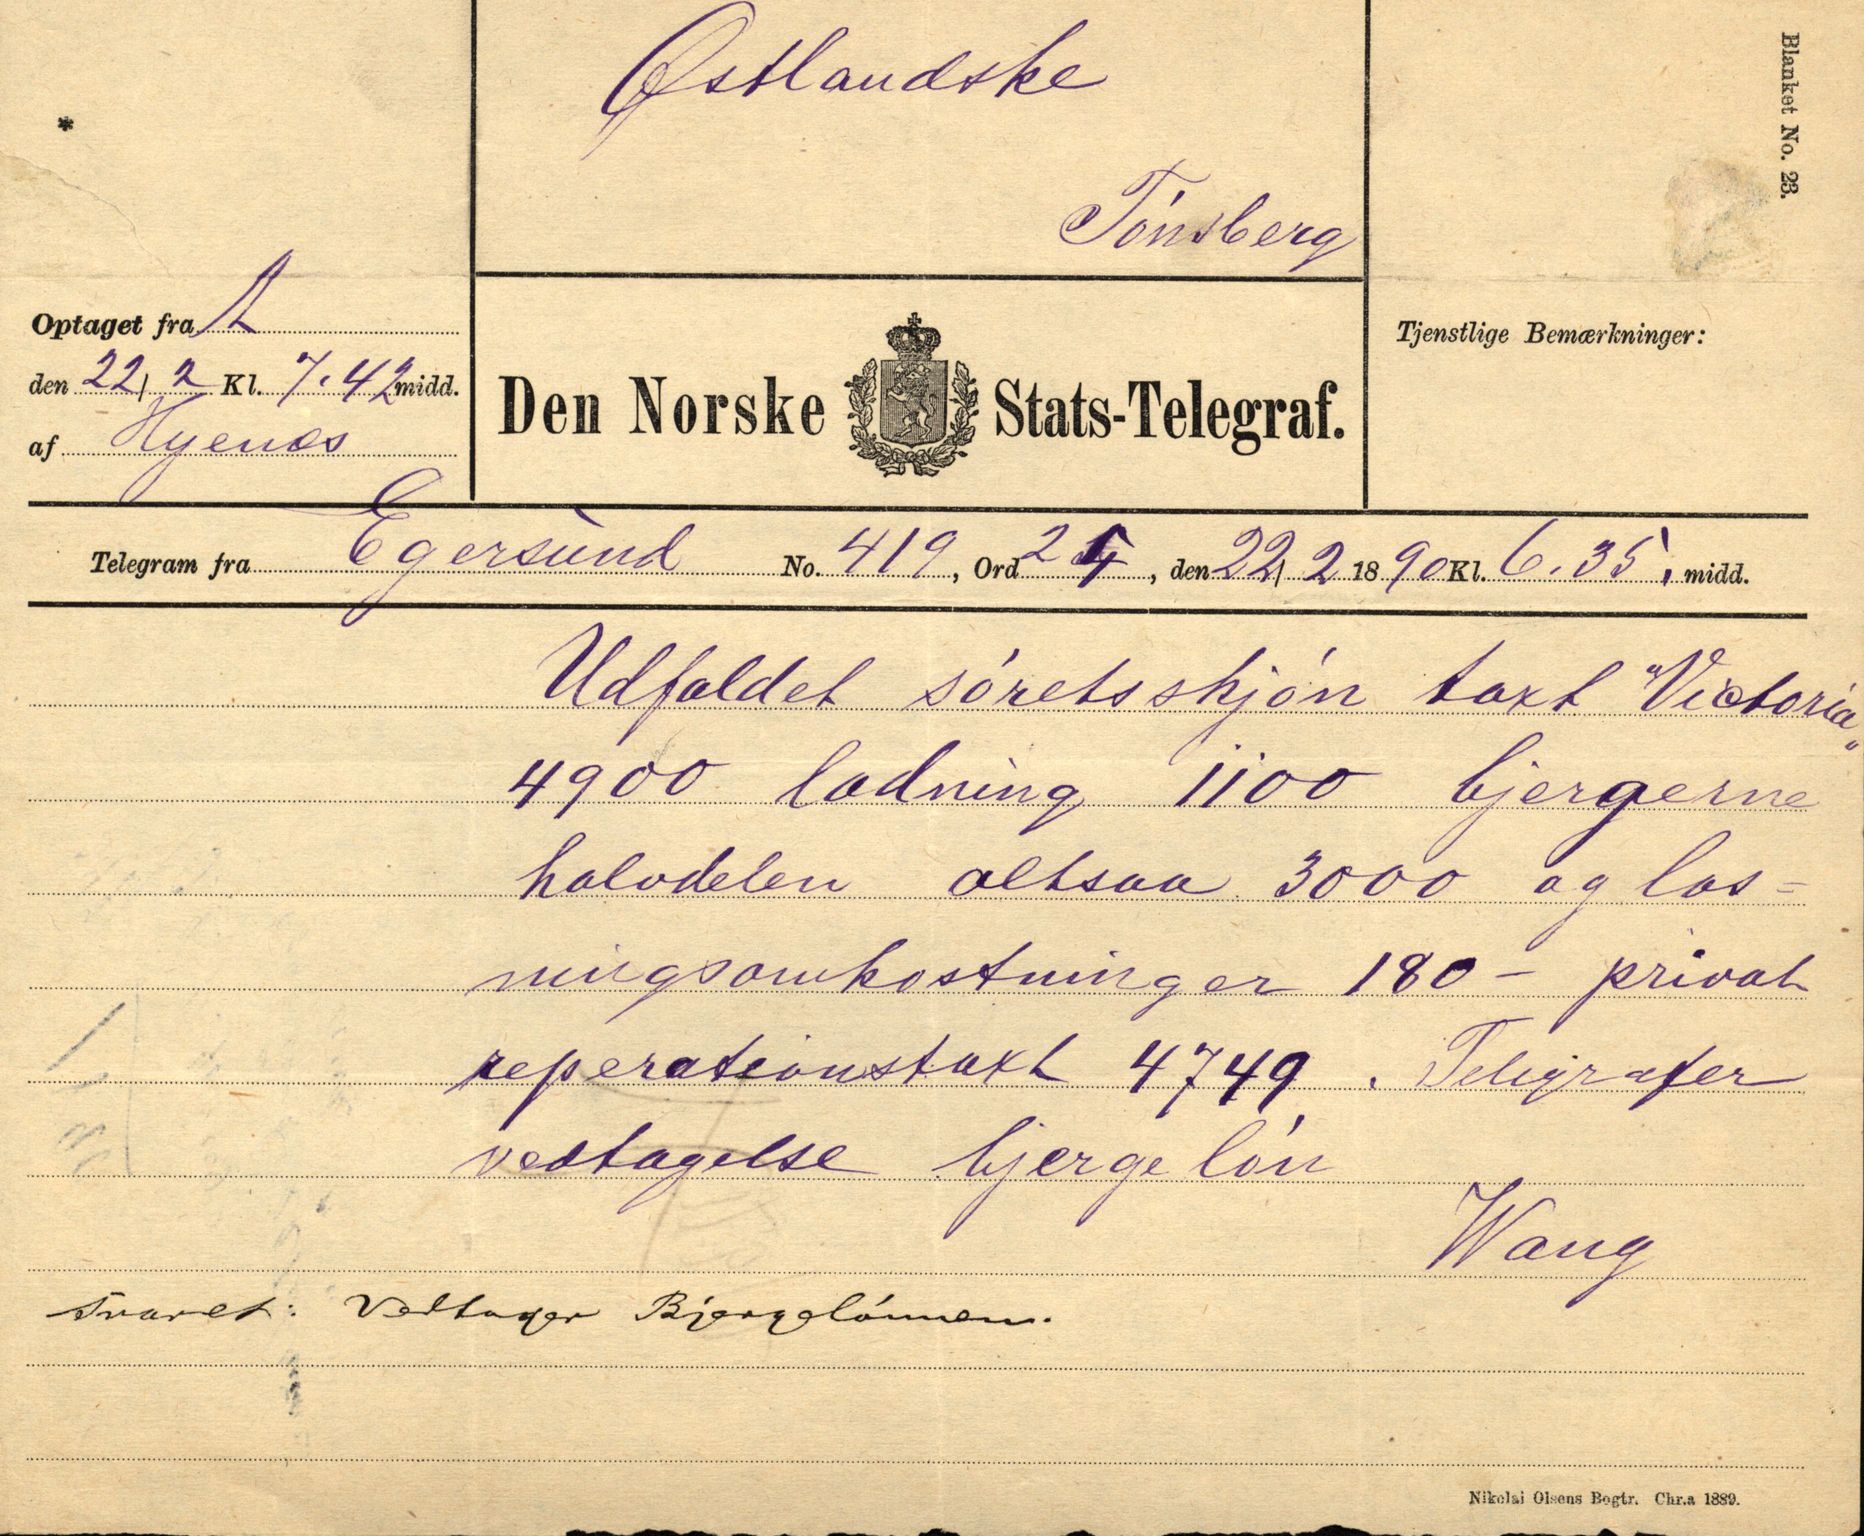 Blanket No. 23.
Østlandske
*
Tónsberg
Optaget fra A
den 22/2 Kl. 7.42 midd.
af Hyenæs
Den Norske Stats-Telegraf.
Tjenstlige Bemærkninger:
Telegram fra Egersund No. 419, Ord 24, den 22/2 1890 Kl. 6.35. midd.
Udfaldet sóretsskjón taxt "Victoria"
4900 ladning 1100 bjergerne
halvdelen altsaa 3000 og los=
ningsomkostninger 180 – privat
reperationstaxt 4749. Telegrafer
vedtagelse bjergelón
Wang
Svaret: Vedtager Bjergelónnen.
Nikolai Olsens Bogtr. Chr.a 1889.